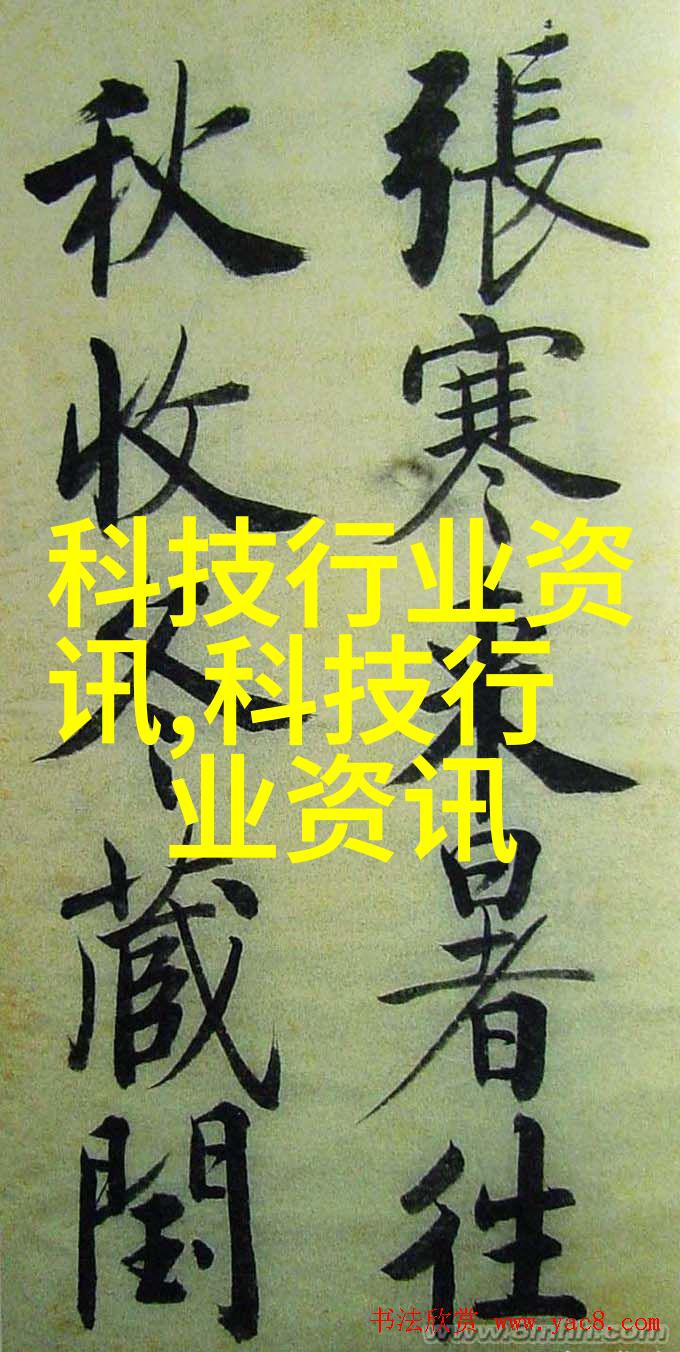 張寒来暑往
秋收冬蔵閏
科技行业资
讯,科技行
业资讯
书法欣赏 www.yac8.com